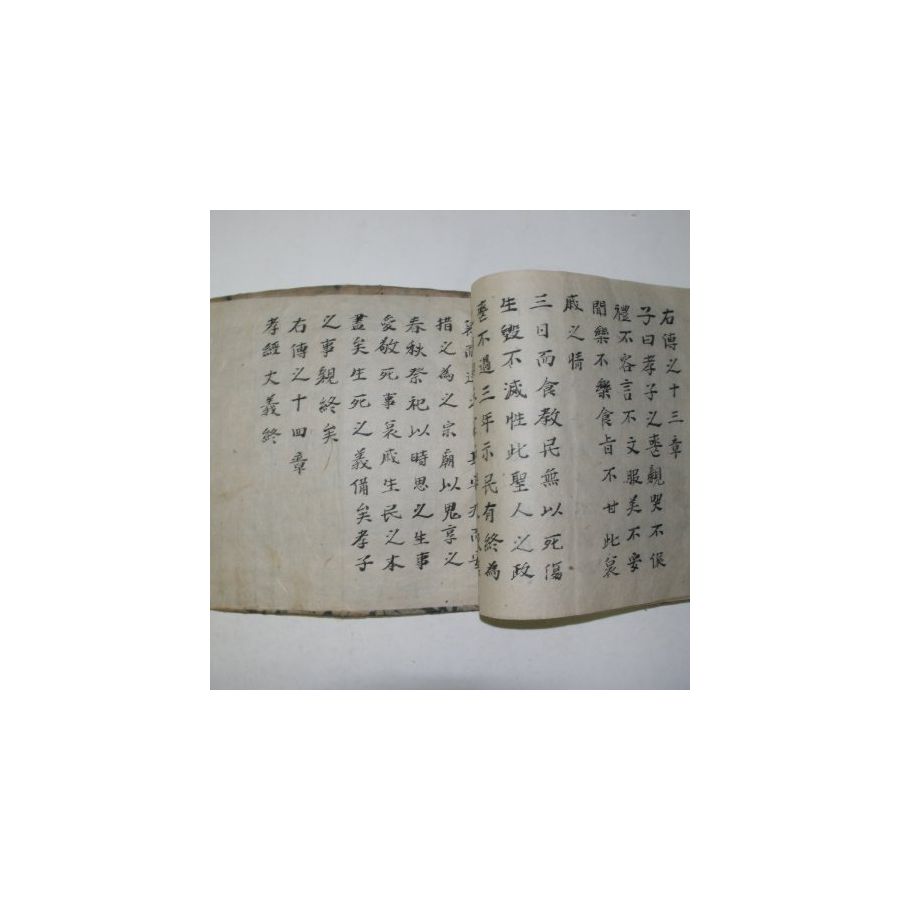 右傳之十三章
子曰孝子之喪親哭不偯
禮不容言不文服美不安
聞樂不樂食旨不甘此哀
戚之情
三日而食教民無以死傷
生毁不滅性此聖人之政
喪不過三年示民有終為
哀而
措之為之宗廟以鬼享之
春秋祭祀以時思之生事
愛敬死事哀戚生民之本
盡矣生死之義備矣孝子
之事親終矣
右傳之十四章
孝經大義終